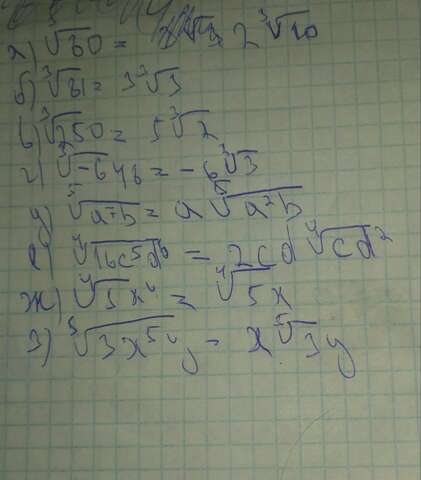 а) ∛80 = 2∛10
б) ∛81 = 3∛3
в) ∛250 = 5∛2
г) ∛-648 = -6∛3
д) ⁵√a⁷b = a ⁵√a²b
е) ⁴√16c⁵d⁶ = 2cd ⁴√cd²
ж) ⁴√5x⁴ = ⁴√5x
з) ⁵√3x⁵y = x ⁵√3y